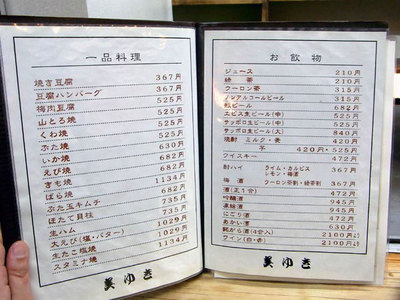 一品料理
焼き豆腐 367円
豆腐ハンバーグ 367円
梅肉豆腐 525円
山とろ焼 525円
くわ焼 525円
ぶた焼 630円
いか焼 682円
えび焼 682円
きも焼 1134円
ばら焼 682円
ぶた玉キムチ 735円
ほたて貝柱 735円
生ハム 1029円
大えび(塩・バター) 1029円
生たこ塩焼 1134円
スタミナ焼
美ゆき
お飲物
ジュース 210円
緑茶 210円
ウーロン茶 315円
ノンアルコールビール 315円
瓶ビール 682円
エビス生ビール(中) 525円
サッポロ生ビール(中) 525円
サッポロ生ビール(大) 840円
焼酎 ミルク・麦 420円
芋 420円・525円
ウイスキー 472円
酎ハイ ライム・カルピス
レモン・梅酒 367円
梅酒 ウーロン茶割・緑茶割
酒(正1合) 472円
吟醸酒 472円
凍結酒 525円
にごり酒 472円
あかい酒 630円
瓶から酒(4合入) 2100円より
ワイン(白・赤) 2100円より
美ゆき